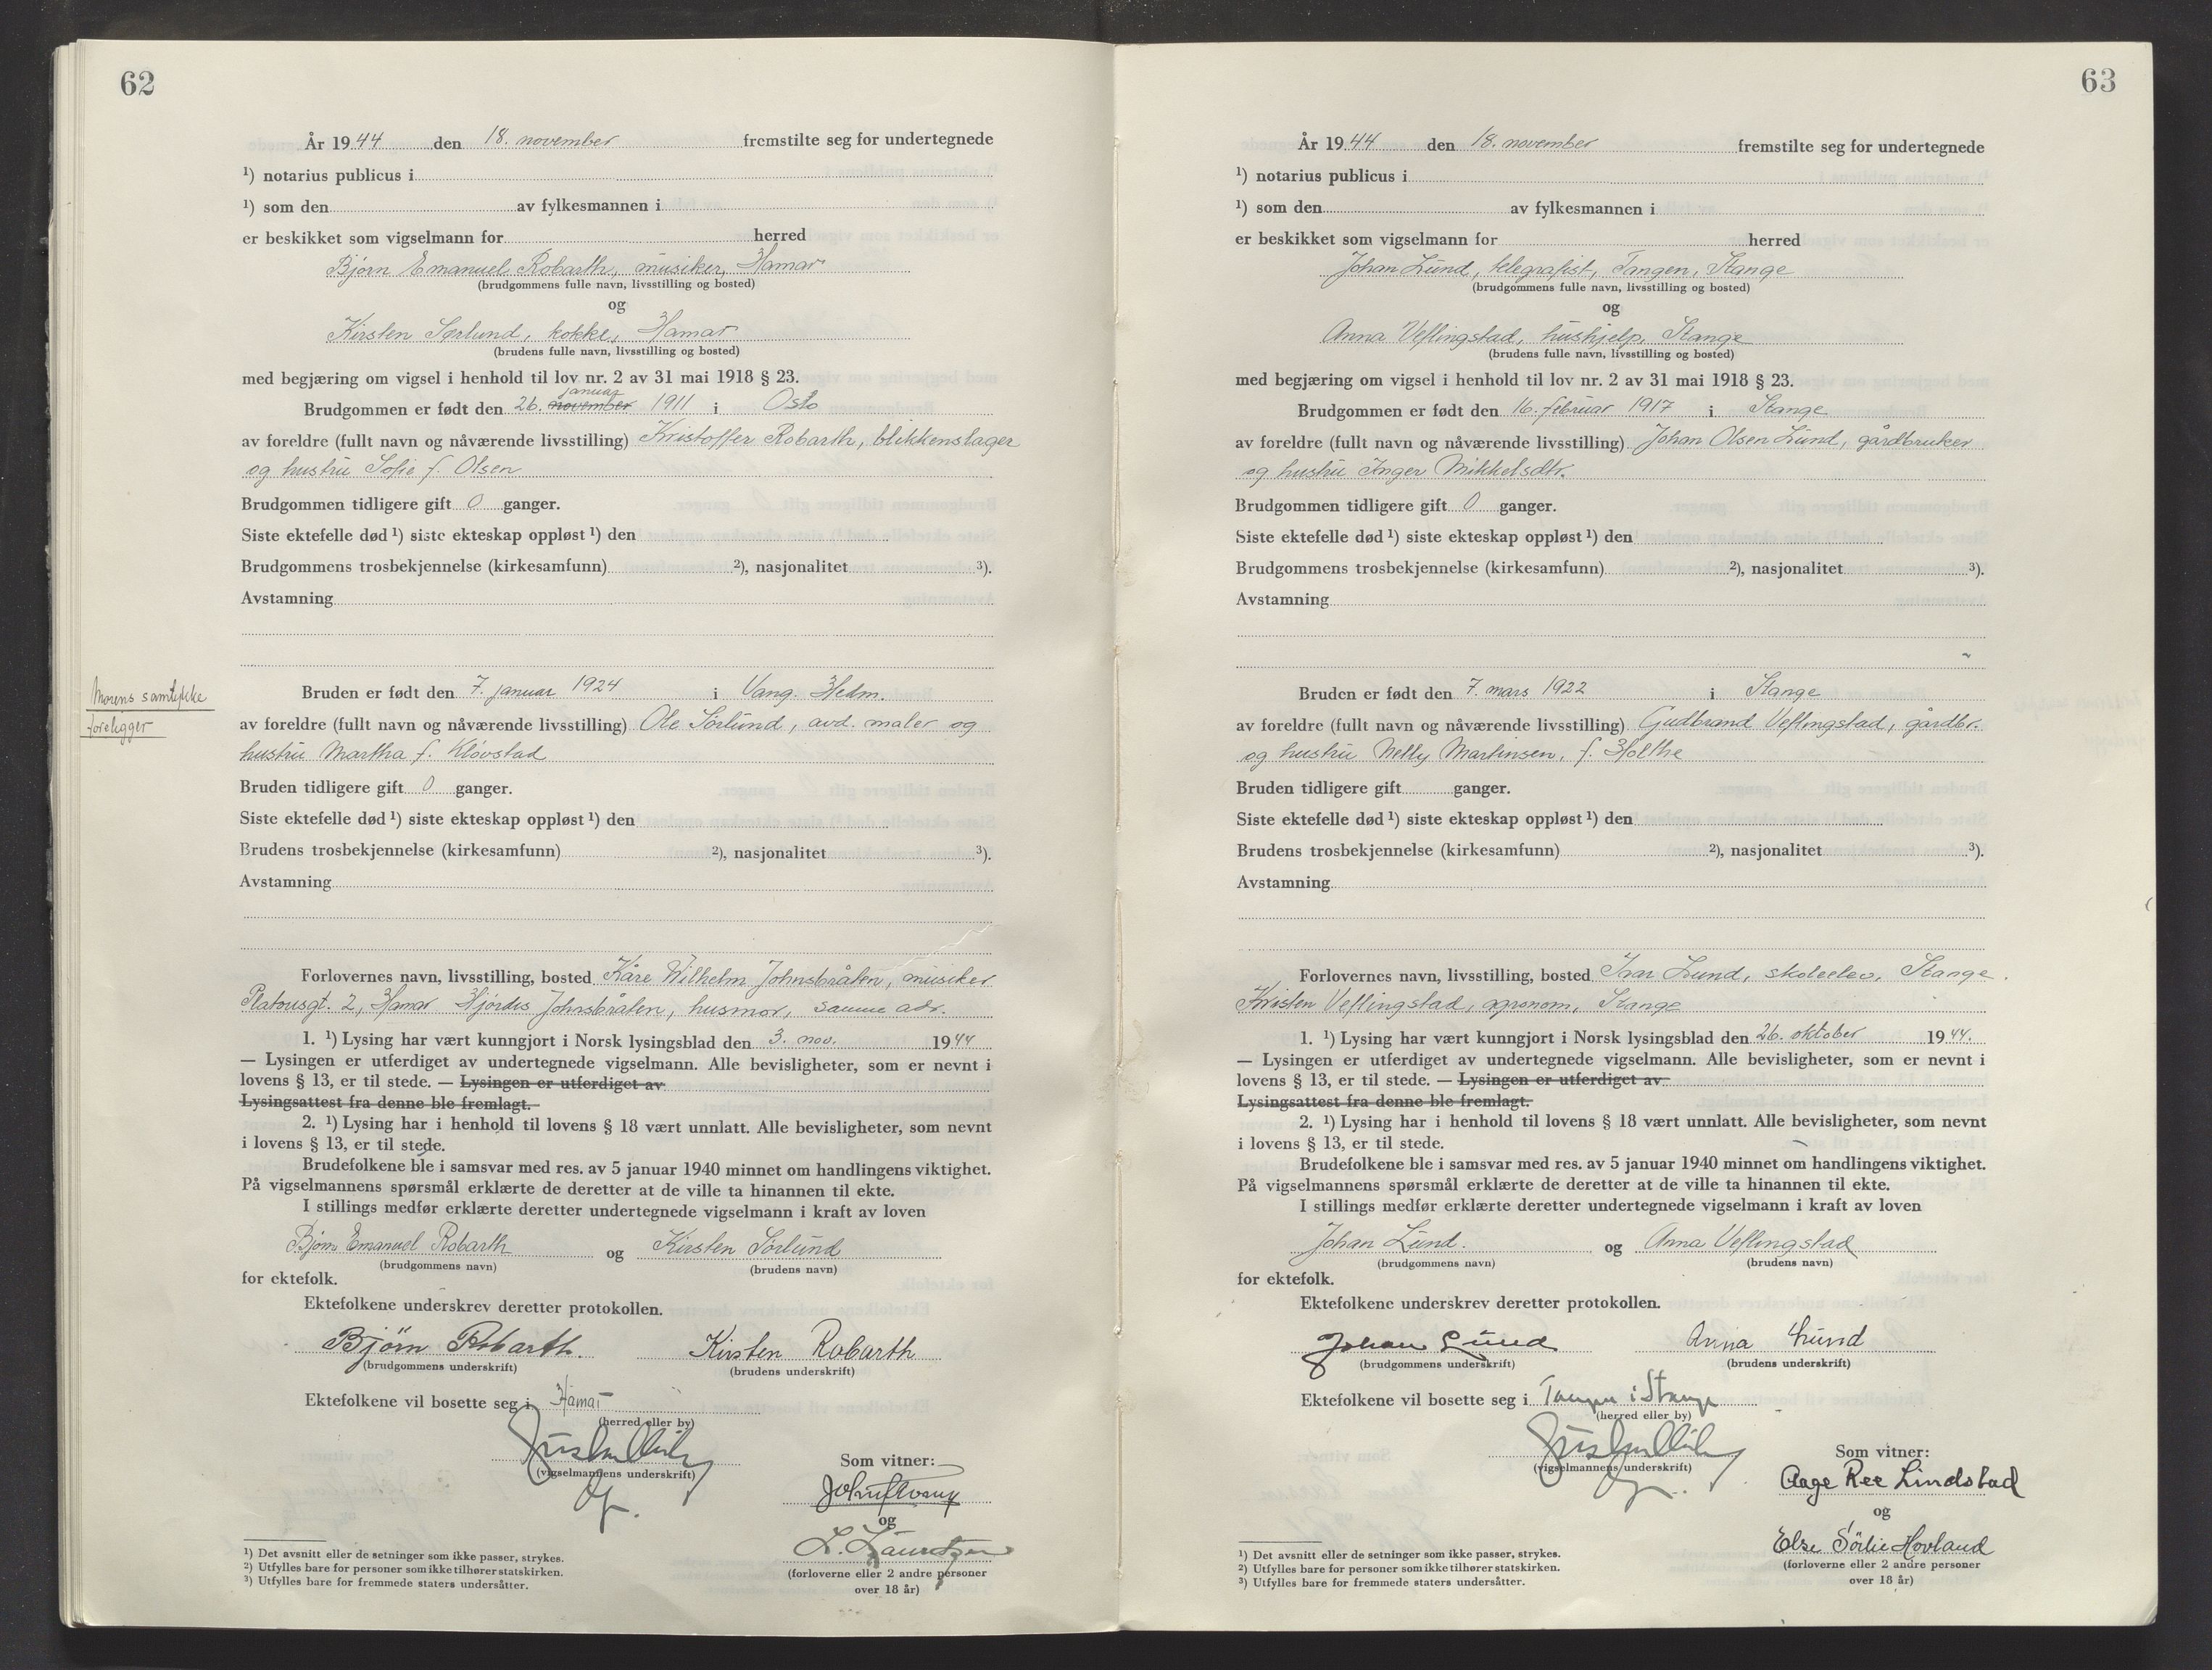 62
År 1944 den 18. november fremstilte seg for undertegnede
¹) notarius publicus i
¹) som den av fylkesmannen i
er beskikket som vigselmann for herred
Bjørn Emanuel Robarth, musiker, Hamar
(brudgommens fulle navn, livsstilling og bosted)
og
Kirsten Sørlund, kokke, Hamar
(brudens fulle navn, livsstilling og bosted)
med begjæring om vigsel i henhold til lov nr. 2 av 31 mai 1918 § 23.
januar
Brudgommen er født den 26. november 1911 i Oslo
av foreldre (fullt navn og nåværende livsstilling) Kristoffer Robarth, blikkenslager
og hustru Sofie f. Olsen
Brudgommen tidligere gift 0 ganger.
Siste ektefelle død ¹) siste ekteskap oppløst ¹) den
Brudgommens trosbekjennelse (kirkesamfunn) ²), nasjonalitet ³).
Avstamning
Morens samtykke
foreligger
Bruden er født den 7. januar 1924 i Vang. Hedm.
av foreldre (fullt navn og nåværende livsstilling) Ole Sørlund, avd. maler og
hustru Martha f. Kløvstad
Bruden tidligere gift 0 ganger.
Siste ektefelle død ¹) siste ekteskap oppløst ¹) den
Brudens trosbekjennelse (kirkesamfunn) ²), nasjonalitet ³).
Avstamning
Forlovernes navn, livsstilling, bosted Kåre Wilhelm Johnsbråten, musiker
Platousgt. 2, Hamar Hjørdis Johnsbråten, husmor, samme adr.
1. ¹) Lysing har vært kunngjort i Norsk lysingsblad den 3. nov. 1944
— Lysingen er utferdiget av undertegnede vigselmann. Alle bevisligheter, som er nevnt i
lovens § 13, er til stede. — Lysingen er utferdiget av
Lysingsattest fra denne ble fremlagt. —
2. ¹) Lysing har i henhold til lovens § 18 vært unnlatt. Alle bevisligheter, som nevnt
i lovens § 13, er til stede.
Brudefolkene ble i samsvar med res. av 5 januar 1940 minnet om handlingens viktighet.
På vigselmannens spørsmål erklærte de deretter at de ville ta hinannen til ekte.
I stillings medfør erklærte deretter undertegnede vigselmann i kraft av loven
Bjørn Emanuel Robarth og Kirsten Sørlund
(brudgommens navn) (brudens navn)
for ektefolk.
Ektefolkene underskrev deretter protokollen.
Bjørn Robarth. Kirsten Robarth
(brudgommens underskrift) (brudens underskrift)
Ektefolkene vil bosette seg i Hamar
(herred eller by)
(vigselmannens underskrift)
Som vitner:
og
L. Lauritzen
(forloverne eller 2 andre personer
over 18 år)
¹) Det avsnitt eller de setninger som ikke passer, strykes.
²) Utfylles bare for personer som ikke tilhører statskirken.
³) Utfylles bare for fremmede staters undersåtter.
63
År 1944 den 18. november fremstilte seg for undertegnede
¹) notarius publicus i
¹) som den av fylkesmannen i
er beskikket som vigselmann for herred
Johan Lund, telegrafist, Tangen, Stange
(brudgommens fulle navn, livsstilling og bosted)
og
Anna Veflingstad, hushjelp, Stange
(brudens fulle navn, livsstilling og bosted)
med begjæring om vigsel i henhold til lov nr. 2 av 31 mai 1918 § 23.
Brudgommen er født den 16. februar 1917 i Stange
av foreldre (fullt navn og nåværende livsstilling) Johan Olsen Lund, gårdbruker
og hustru Inger Mikkelsdtr.
Brudgommen tidligere gift 0 ganger.
Siste ektefelle død ¹) siste ekteskap oppløst ¹) den
Brudgommens trosbekjennelse (kirkesamfunn) ²), nasjonalitet ³).
Avstamning
Bruden er født den 7. mars 1922 i Stange
av foreldre (fullt navn og nåværende livsstilling) Gudbrand Veflingstad, gårdbr.
og hustru Nelly Martinsen, f. Holthe
Bruden tidligere gift ganger.
Siste ektefelle død ¹) siste ekteskap oppløst ¹) den
Brudens trosbekjennelse (kirkesamfunn) ²), nasjonalitet ³).
Avstamning
Forlovernes navn, livsstilling, bosted Ivar Lund, skoleelev, Stange.
Kristen Veflingstad, agronom, Stange
1. ¹) Lysing har vært kunngjort i Norsk lysingsblad den 26. oktober 1944.
— Lysingen er utferdiget av undertegnede vigselmann. Alle bevisligheter, som er nevnt i
lovens § 13, er til stede. — Lysingen er utferdiget av
Lysingsattest fra denne ble fremlagt.
2. ¹) Lysing har i henhold til lovens § 18 vært unnlatt. Alle bevisligheter, som nevnt
i lovens § 13, er til stede.
Brudefolkene ble i samsvar med res. av 5 januar 1940 minnet om handlingens viktighet.
På vigselmannens spørsmål erklærte de deretter at de ville ta hinannen til ekte.
I stillings medfør erklærte deretter undertegnede vigselmann i kraft av loven
Johan Lund. og Anna Veflingstad
(brudgommens navn) (brudens navn)
for ektefolk.
Ektefolkene underskrev deretter protokollen.
Johan Lund Anna Lund
(brudgommens underskrift) (brudens underskrift)
Ektefolkene vil bosette seg i Tangen i Stange
(herred eller by)
(vigselmannens underskrift)
Som vitner:
Aage Ree Lindstad
og
Else Sörlie Hovland
(forloverne eller 2 andre personer
over 18 år)
¹) Det avsnitt eller de setninger som ikke passer, strykes.
²) Utfylles bare for personer som ikke tilhører statskirken.
³) Utfylles bare for fremmede staters undersåtter.